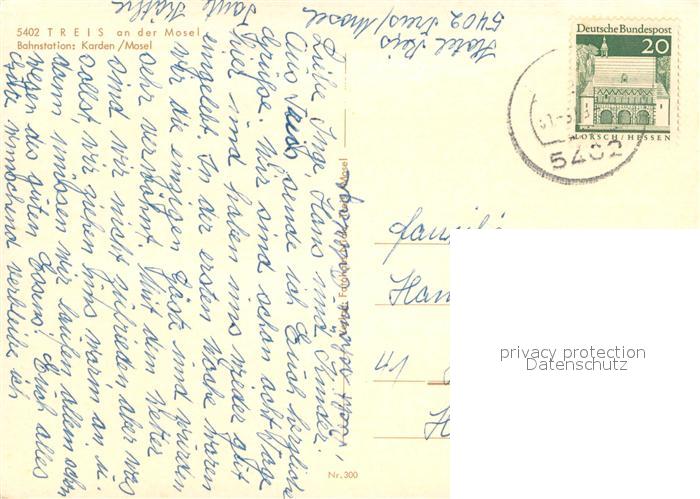 5402 TREIS an der Mosel
Bahnstation: Karden/Mosel
Hotel Reis
5402 Treis/Mosel
Liebe Inge, Hans und Kinder.
Aus Treis sende ich Euch herzliche
Grüße. Wir sind schon acht Tage
hier und haben uns wieder gut
eingelebt. In der ersten Woche waren
wir die einzigen Gäste und wurden
sehr verwöhnt. Mit dem Wetter
sind wir nicht zufrieden aber was
solls, wir ziehen uns warm an u.
dann müssen wir laufen allein schon
wegen des guten Essens. Euch alles
Gute wünschend verbleibe ich
Tante
Nr. 300
Deutsche Bundespost
20
LORSCH/HESSEN
5402
Familie
Han
41
H
privacy protection
Datenschutz